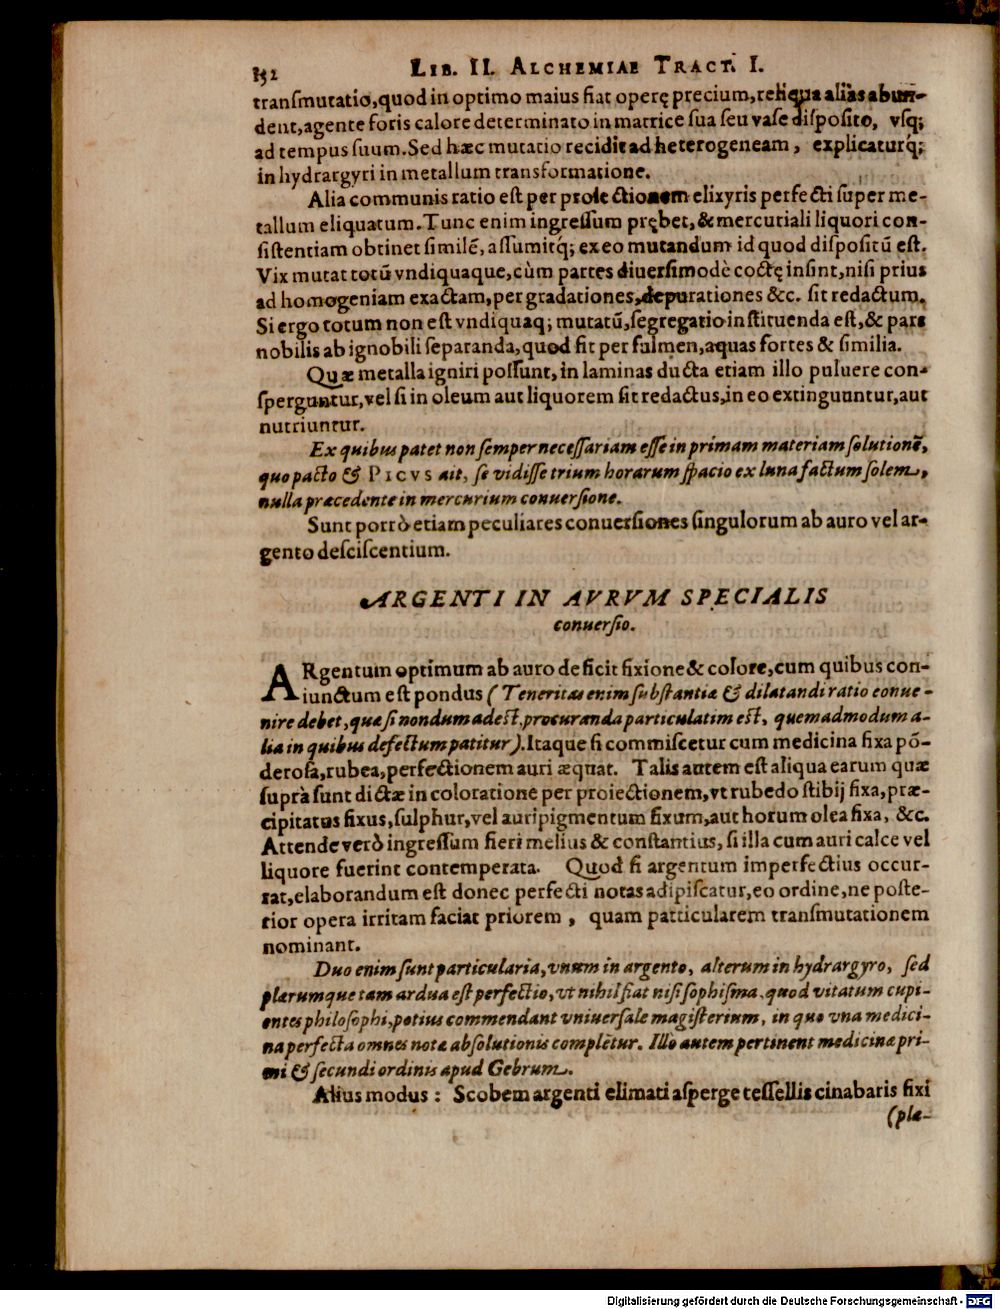 152 LIB. II. ALCHEMIAE TRACT. I.
tranſmutatio, quod in optimo maius fiat operę precium, reliqua aliàs abun-
dent, agente foris calore determinato in matrice ſua ſeu vaſe diſpoſito, vſq;
ad tempus ſuum. Sed hæc mutatio recidit ad heterogeneam, explicaturq́;
in hydrargyri in metallum transformatione.
Alia communis ratio eſt per proiectionem elixyris perfecti ſuper me-
tallum eliquatum. Tunc enim ingreſſum prębet, & mercuriali liquori con-
ſiſtentiam obtinet ſimilẽ, aſſumitq́; ex eo mutandum id quod diſpoſitũ eſt.
Vix mutat totũ vndiquaque, cùm partes diuerſimodè coctę inſint, niſi prius
ad homogeniam exactam, per gradationes, depurationes &c. ſit redactum.
Si ergo totum non eſt vndiquaq; mutatũ, ſegregatio inſtituenda eſt, & pars
nobilis ab ignobili ſeparanda, quod fit per fulmen, aquas fortes & ſimilia.
Quæ metalla igniri poſſunt, in laminas ducta etiam illo puluere con-
ſperguntur, vel ſi in oleum aut liquorem ſit redactus, in eo extinguuntur, aut
nutriuntur.
Ex quibus patet non ſemper neceſſariam eſſe in primam materiam ſolutionẽ,
quo pacto & PICVS ait, ſe vidiſſe trium horarum ſpacio ex luna factum ſolem,
nulla præcedente in mercurium conuerſione.
Sunt porrò etiam peculiares conuerſiones ſingulorum ab auro vel ar-
gento deſciſcentium.
ARGENTI IN AVRVM SPECIALIS
conuerſio.
ARgentum optimum ab auro deficit fixione & colore, cum quibus con-
iunctum eſt pondus (Teneritas enim ſubſtantiæ & dilatandi ratio conue-
nire debet, quæ ſi nondum adeſt, procuranda particulatim eſt, quemadmodum a-
lia in quibus defectum patitur). Itaque ſi commiſcetur cum medicina fixa põ-
deroſa, rubea, perfectionem auri æquat. Talis autem eſt aliqua earum quæ
ſuprà ſunt dictæ in coloratione per proiectionem, vt rubedo ſtibij fixa, præ-
cipitatus fixus, ſulphur, vel auripigmentum fixum, aut horum olea fixa, &c.
Attende verò ingreſſum fieri melius & conſtantius, ſi illa cum auri calce vel
liquore fuerint contemperata. Quod ſi argentum imperfectius occur-
rat, elaborandum eſt donec perfecti notas adipiſcatur, eo ordine, ne poſte-
rior opera irritam faciat priorem, quam particularem tranſmutationem
nominant.
Duo enim ſunt particularia, vnum in argento, alterum in hydrargyro, ſed
plærumque tam ardua eſt perfectio, vt nihil fiat niſi ſophiſma, quod vitatum cupi-
entes philoſophi, potius commendant vniuerſale magiſterium, in quo vna medici-
na perfecta omnes notæ abſolutionis complẽtur. Illo autem pertinent medicinæ pri-
mi & ſecundi ordinis apud Gebrum.
Alius modus: Scobem argenti elimati aſperge teſſellis cinabaris fixi
(plæ-
Digitalisierung gefördert durch die Deutsche Forschungsgemeinschaft - DFG